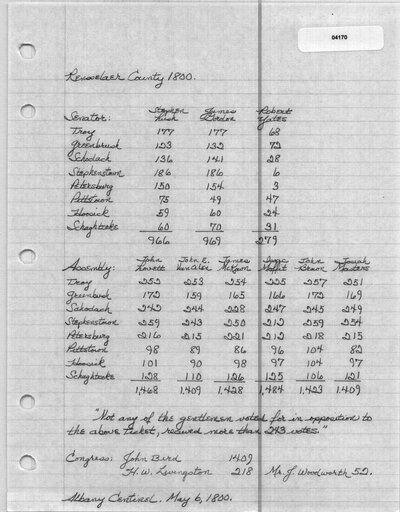 04170
Rensselaer County 1800.
Stephen James Robert
Senator: Rush Gordon Yates
Troy 177 177 68
Greenbush 123 132 72
Schodack 136 141 28
Stephenstown 186 186 6
Petersburg 150 154 3
Pittstown 75 49 47
Hoosick 59 60 24
Schaghticoke 60 70 31
966 969 279
John John E. James John Josiah
Assembly: Lovett Van Alen McKown Moffit Brown Masters
Troy 252 253 254 225 257 251
Greenbush 172 159 165 166 172 169
Schodack 242 244 228 247 245 249
Stephenstown 259 243 250 212 259 254
Petersburg 216 215 221 212 218 215
Pittstown 98 89 86 96 104 82
Hoosick 101 90 98 97 104 97
Schaghticoke 128 110 126 125 106 121
1,468 1,409 1,428 1,484 1,423 1,409
"Not any of the gentlemen voted for in opposition to
the above ticket, received more than 243 votes."
Congress: John Bird 1409
H. W. Livingston 218 Mr. J Woodworth 52.
Albany Centinel. May 6, 1800.